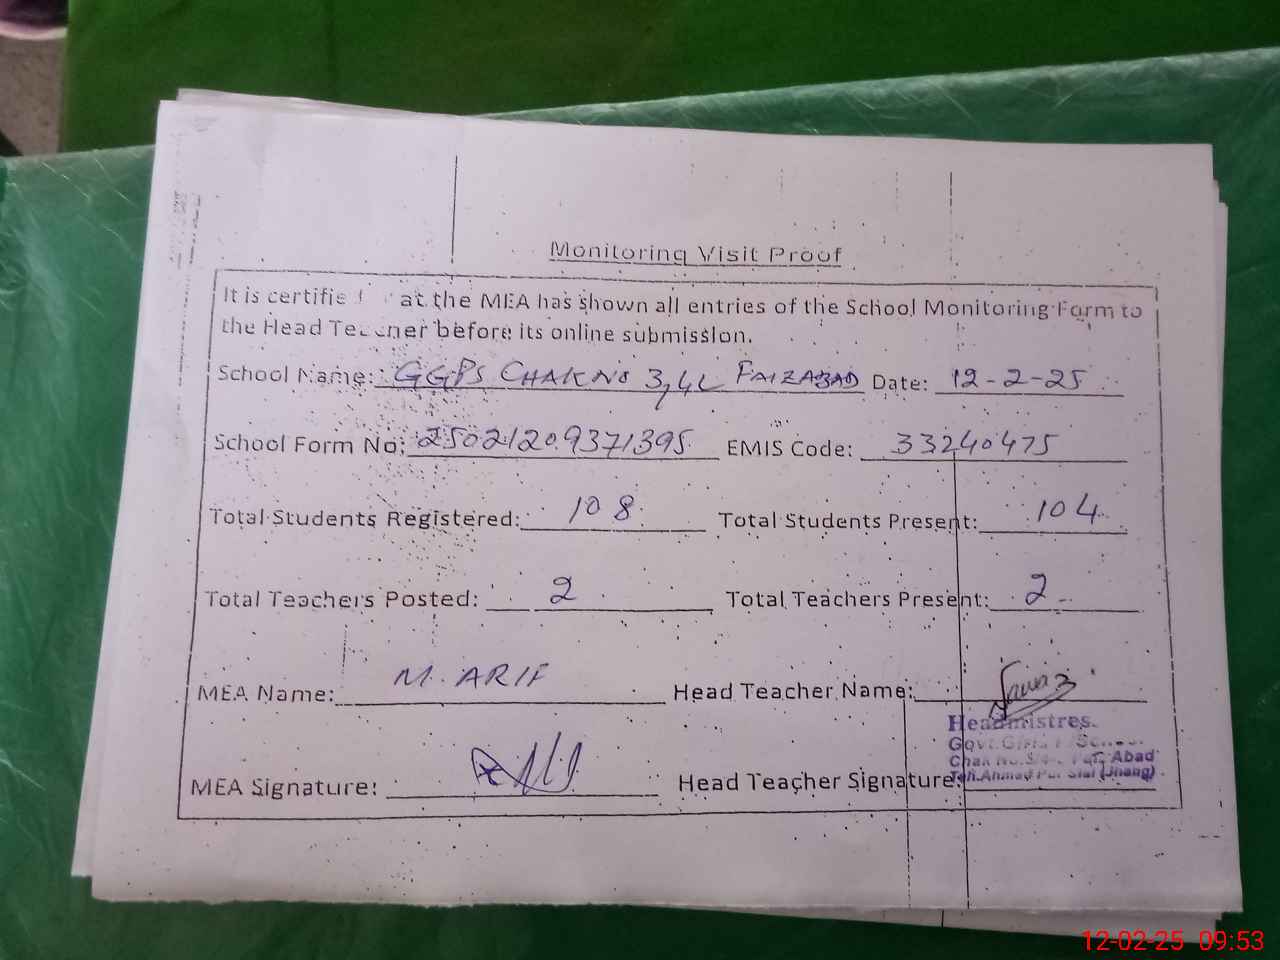 Monitoring Visit Proof
It is certifie at the MEA has shown all entries of the School Monitoring Form to
the Head Teacher before its online submission.
School Name: GGPS CHAK NO 3,4L FAIZABAD Date: 12-2-25
School Form No: 25021209371395 EMIS Code: 33240475
Total Students Registered: 108 Total Students Present: 104
Total Teachers Posted: 2 Total Teachers Present: 2
MEA Name: M. ARIF Head Teacher Name:
Headmistres.
Govt.
Chak No. Abad
MEA Signature: Head Teacher Signature:
Teh. Ahmad Pur Sial (Jhang)
12-02-25 09:53